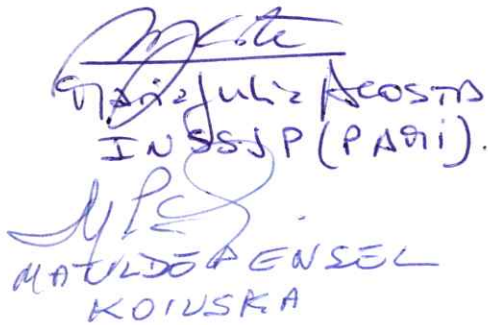 María Julia Acosta
INSSJP (PAMI).
MATILDE PENSEL
KOINSKA